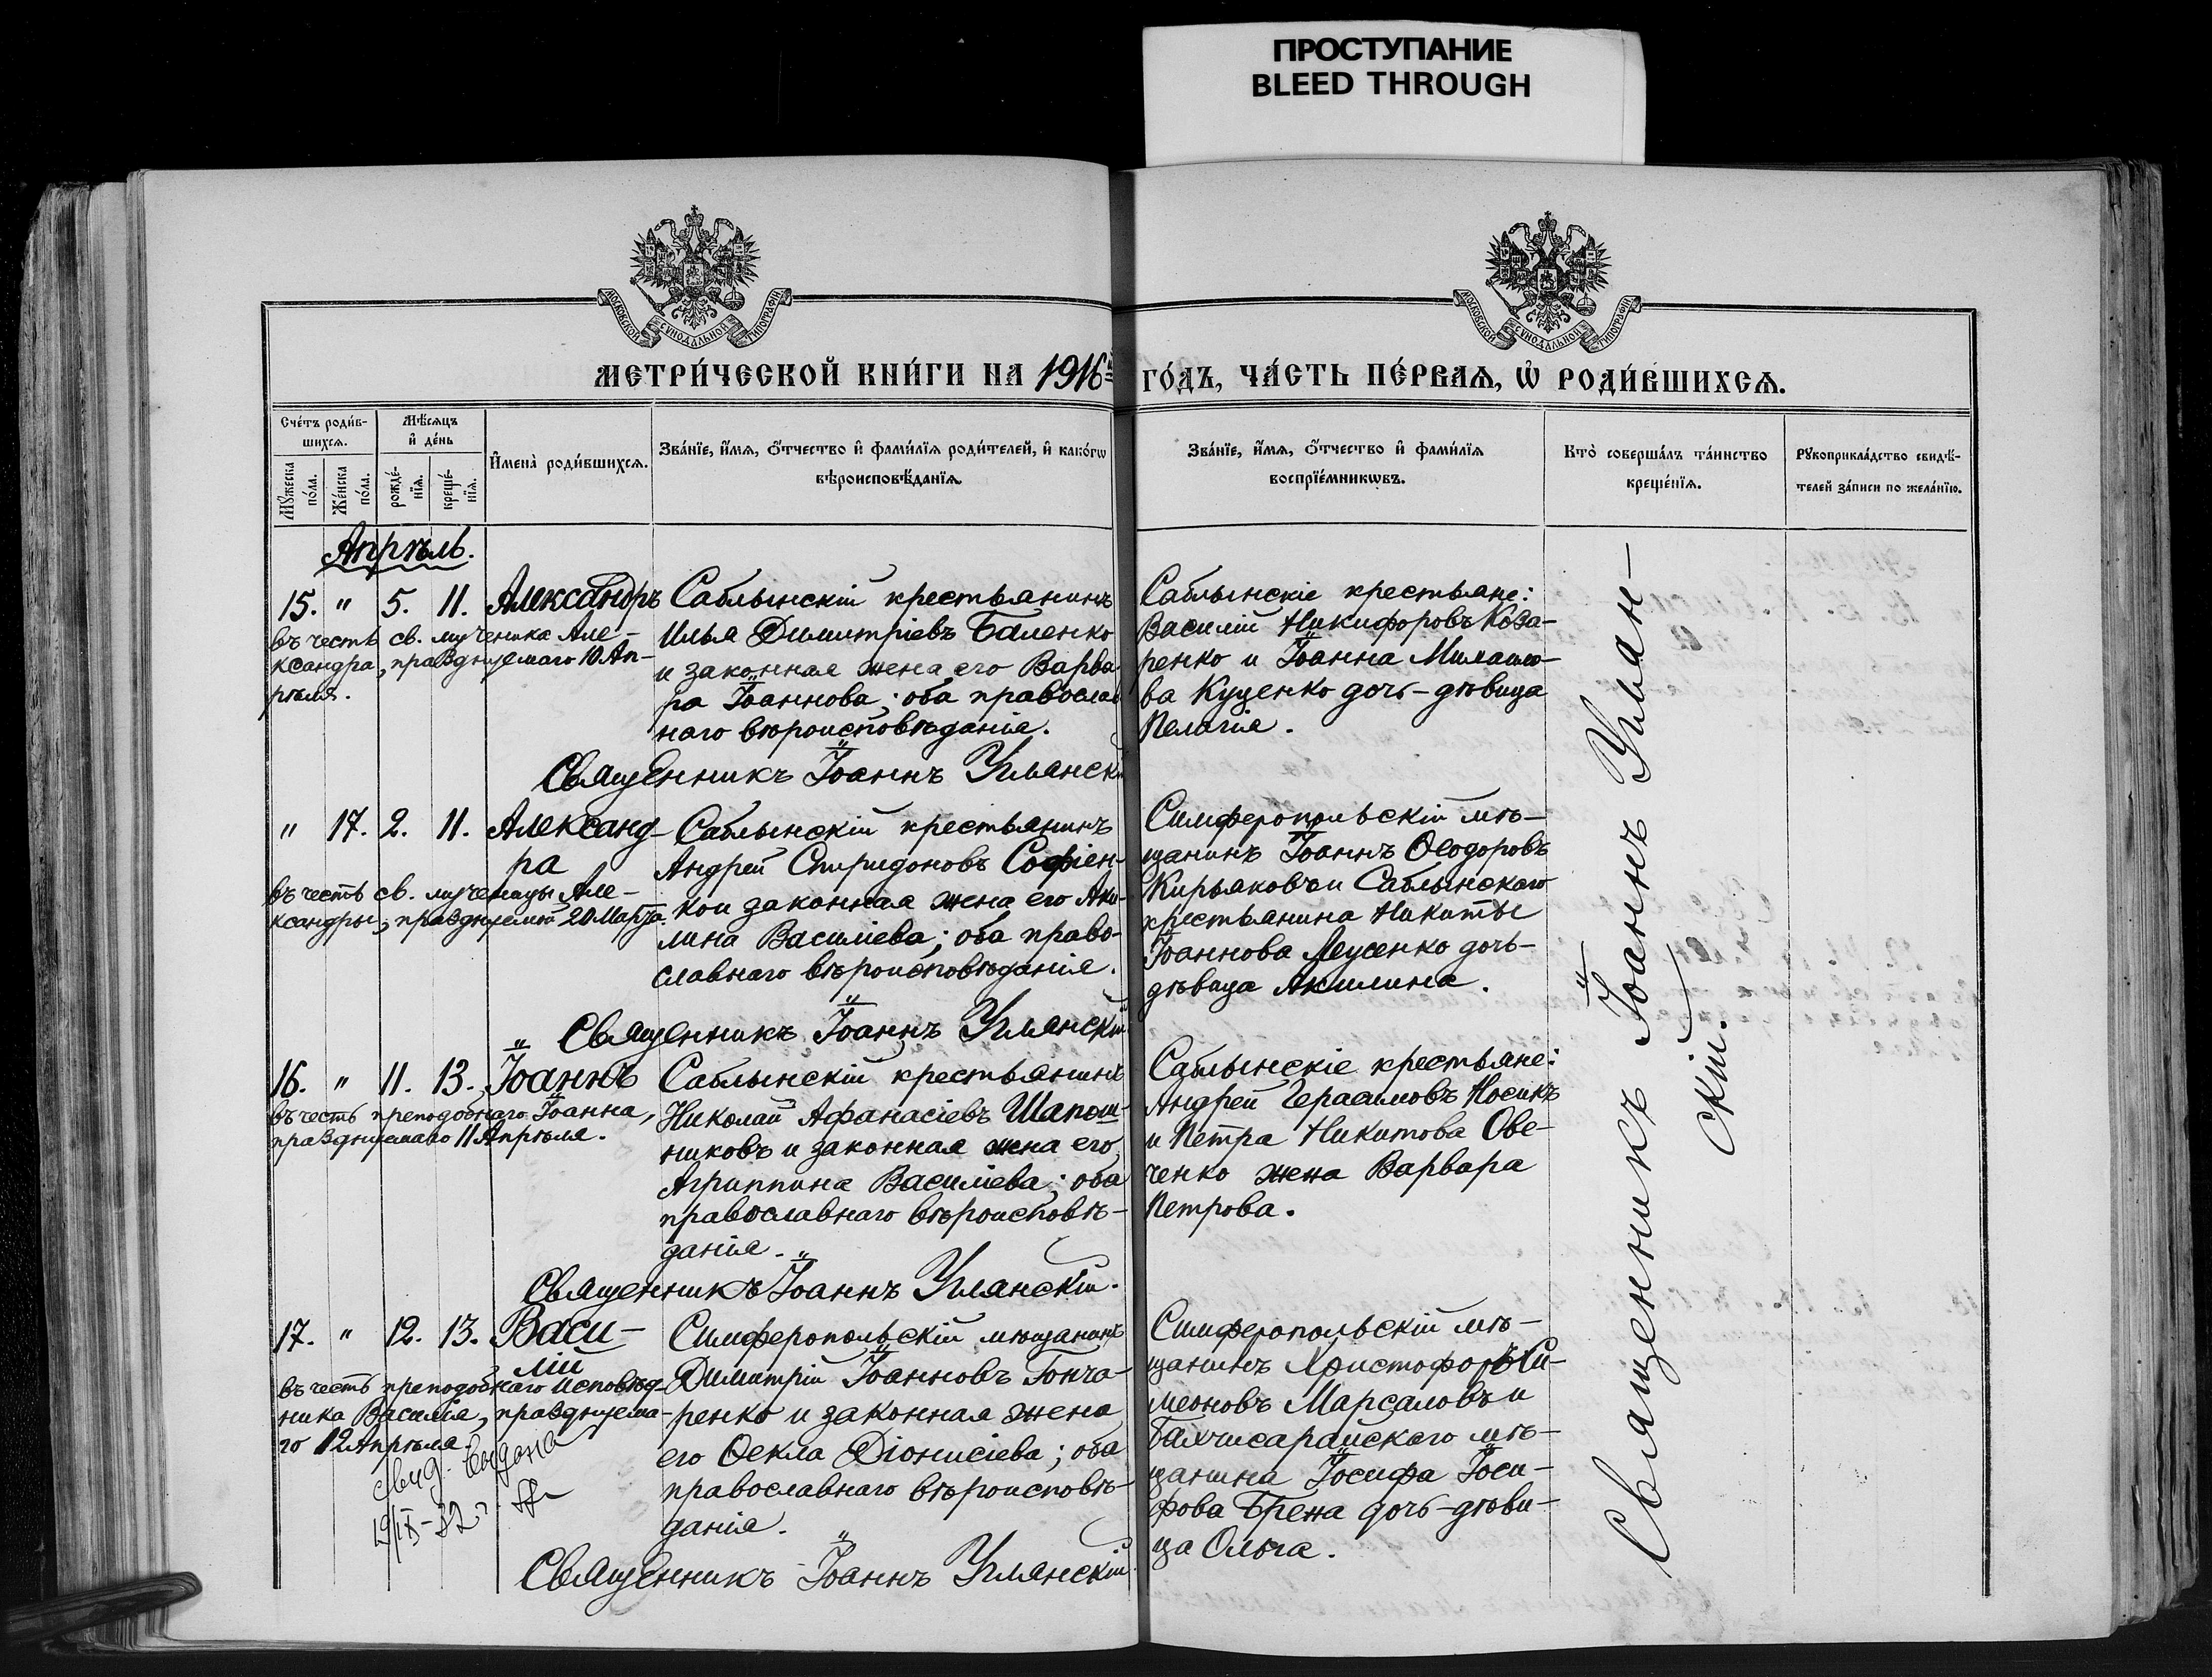 ПРОСТУПАНИЕ
BLEED THROUGH
МОСКОВСКОЙ СѴНОДАЛЬНОЙ ТИПОГРАФІИ
МОСКОВСКОЙ СѴНОДАЛЬНОЙ ТИПОГРАФІИ
МЕТРИ́ЧЕСКОЙ КНИ́ГИ НА 1916й ГО́ДЪ, ЧА́СТЬ ПЕ́РВАѦ, Ѡ҆ РОДИ́ВШИХСѦ.
Сче́тъ роди́в-
шихсѧ.
Мꙋ́жеска по́ла.
Же́нска по́ла.
Мѣ́сѧцъ
и҆ де́нь
рожде́-
нїѧ.
креще́-
нїѧ.
И҆мена̀ роди́вшихсѧ.
Зва́нїе, и҆́мѧ, ѻ҆́тчество и҆ фами́лїѧ роди́телей, и҆ како́гѡ
вѣроисповѣ́данїѧ.
Зва́нїе, и҆́мѧ, ѻ҆́тчество и҆ фами́лїѧ
воспрїе́мникѡвъ.
Кто̀ соверша́лъ та́инство
креще́нїѧ.
Рꙋкоприкла́дство свидѣ́-
телей за́писи по жела́нїю.
Апрѣль.
15. " 5. 11. Александръ
въ честь св. мученика Але-
ксандра, празднуемаго 10 Ап-
рѣля.
Саблынскій крестьянинъ
Илья Димитріевъ Баленко
и законная жена его Варва
ра Іоаннова; оба православ
наго вѣроисповѣданія.
Священникъ Іоаннъ Уманскі
Саблынскіе крестьяне:
Василій Никифоровъ Коза-
ренко и Іоанна Михаило-
ва Куценко дочь-дѣвица
Пелагія.
" 17. 2. 11. Александ-
ра
въ честь св. мученицы Але-
ксандры, празднуемт 20 Марта.
Саблынскій крестьянинъ
Андрей Спиридоновъ Софіен-
ко и законная жена его Аки-
лина Василіева; оба право-
славнаго вѣроисповѣданія.
Священникъ Іоаннъ Уманскій
Симферопольскій мѣ-
щанинъ Іоаннъ Ѳеодоровъ
Кирьяковъ и Саблынскаго
крестьянина Никиты
Іоаннова Леусенко дочь-
дѣвица Акилина.
16. " 11. 13. Іоаннъ
въ честь преподобнаго Іоанна,
празднуемаго 11 Апрѣля.
Саблынскій крестьянинъ
Николай Афанасіевъ Шапош-
никовъ и законная жена его
Агриппина Василіева; оба
православнаго вѣроисповѣ-
данія.
Священникъ Іоаннъ Уманскій.
Саблынскіе крестьяне:
Андрей Герасимовъ Носикъ
и Петра Никитова Ове-
ченко жена Варвара
Петрова.
17. " 12. 13. Васи-
лій
въ честь преподобнаго Исповѣд-
ника Василія, празднуема-
го 12 Апрѣля.
Свид. выдана
19/IX-22 г.
Симферопольскій мѣщанинъ
Димитрій Іоанновъ Гонча-
ренко и законная жена
его Ѳекла Діонисіева; оба
православнаго вѣроисповѣ-
данія.
Священникъ Іоаннъ Уманскій
Симферопольскій мѣ-
щанинъ Христофоръ Си-
меоновъ Марсаловъ и
Бахчисарайскаго мѣ-
щанина Іосифа Іоси-
фова Брена дочь-дѣви-
ца Ольга.
Священникъ Іоаннъ Уман-
скій.